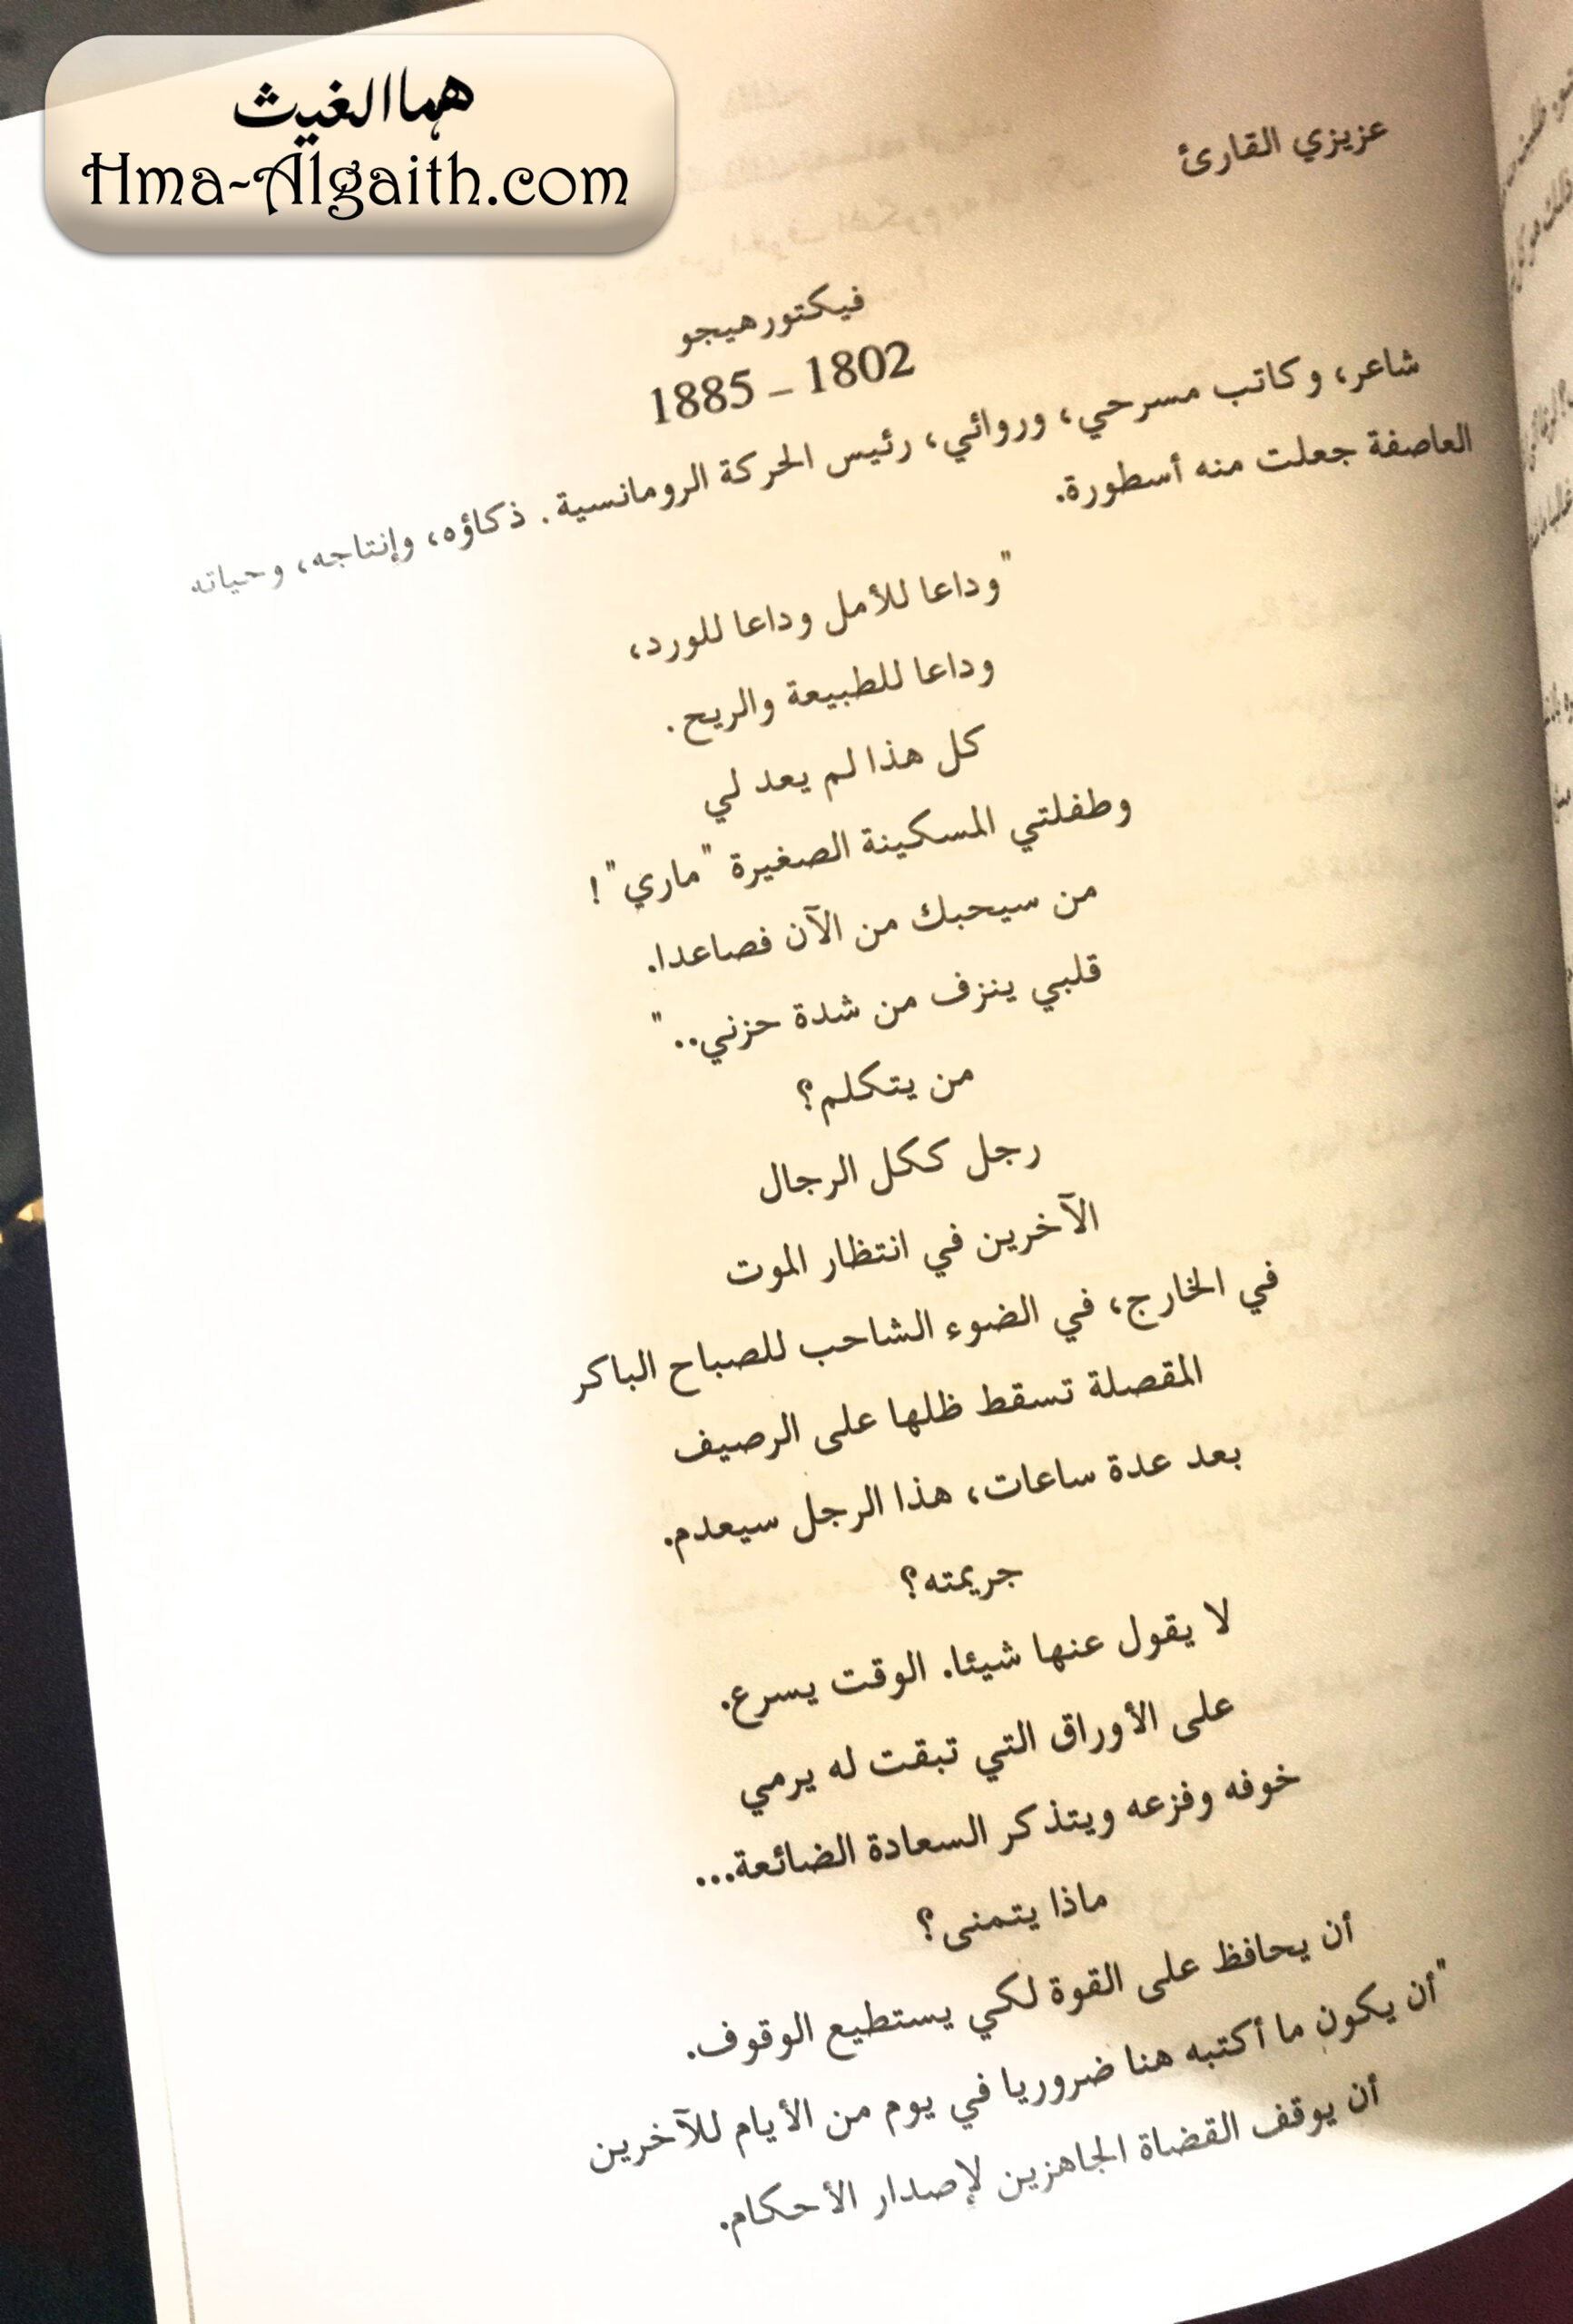 هما الغيث
Hma-Algaith.com
عزيزي القارئ
فيكتور هيجو
1802 – 1885
شاعر، وكاتب مسرحي، وروائي، رئيس الحركة الرومانسية. ذكاؤه، وإنتاجه، وحياته
العاصفة جعلت منه أسطورة.
"وداعا للأمل وداعا للورد،
وداعا للطبيعة والريح.
كل هذا لم يعد لي
وطفلتي المسكينة الصغيرة "ماري"!
من سيحبك من الآن فصاعدا.
قلبي ينزف من شدة حزني.."
من يتكلم؟
رجل ككل الرجال
الآخرين في انتظار الموت
في الخارج، في الضوء الشاحب للصباح الباكر
المقصلة تسقط ظلها على الرصيف
بعد عدة ساعات، هذا الرجل سيعدم.
جريمته؟
لا يقول عنها شيئا. الوقت يسرع.
على الأوراق التي تبقت له يرمي
خوفه وفزعه ويتذكر السعادة الضائعة...
ماذا يتمنى؟
أن يحافظ على القوة لكي يستطيع الوقوف.
"أن يكون ما أكتبه هنا ضروريا في يوم من الأيام للآخرين
أن يوقف القضاة الجاهزين لإصدار الأحكام.